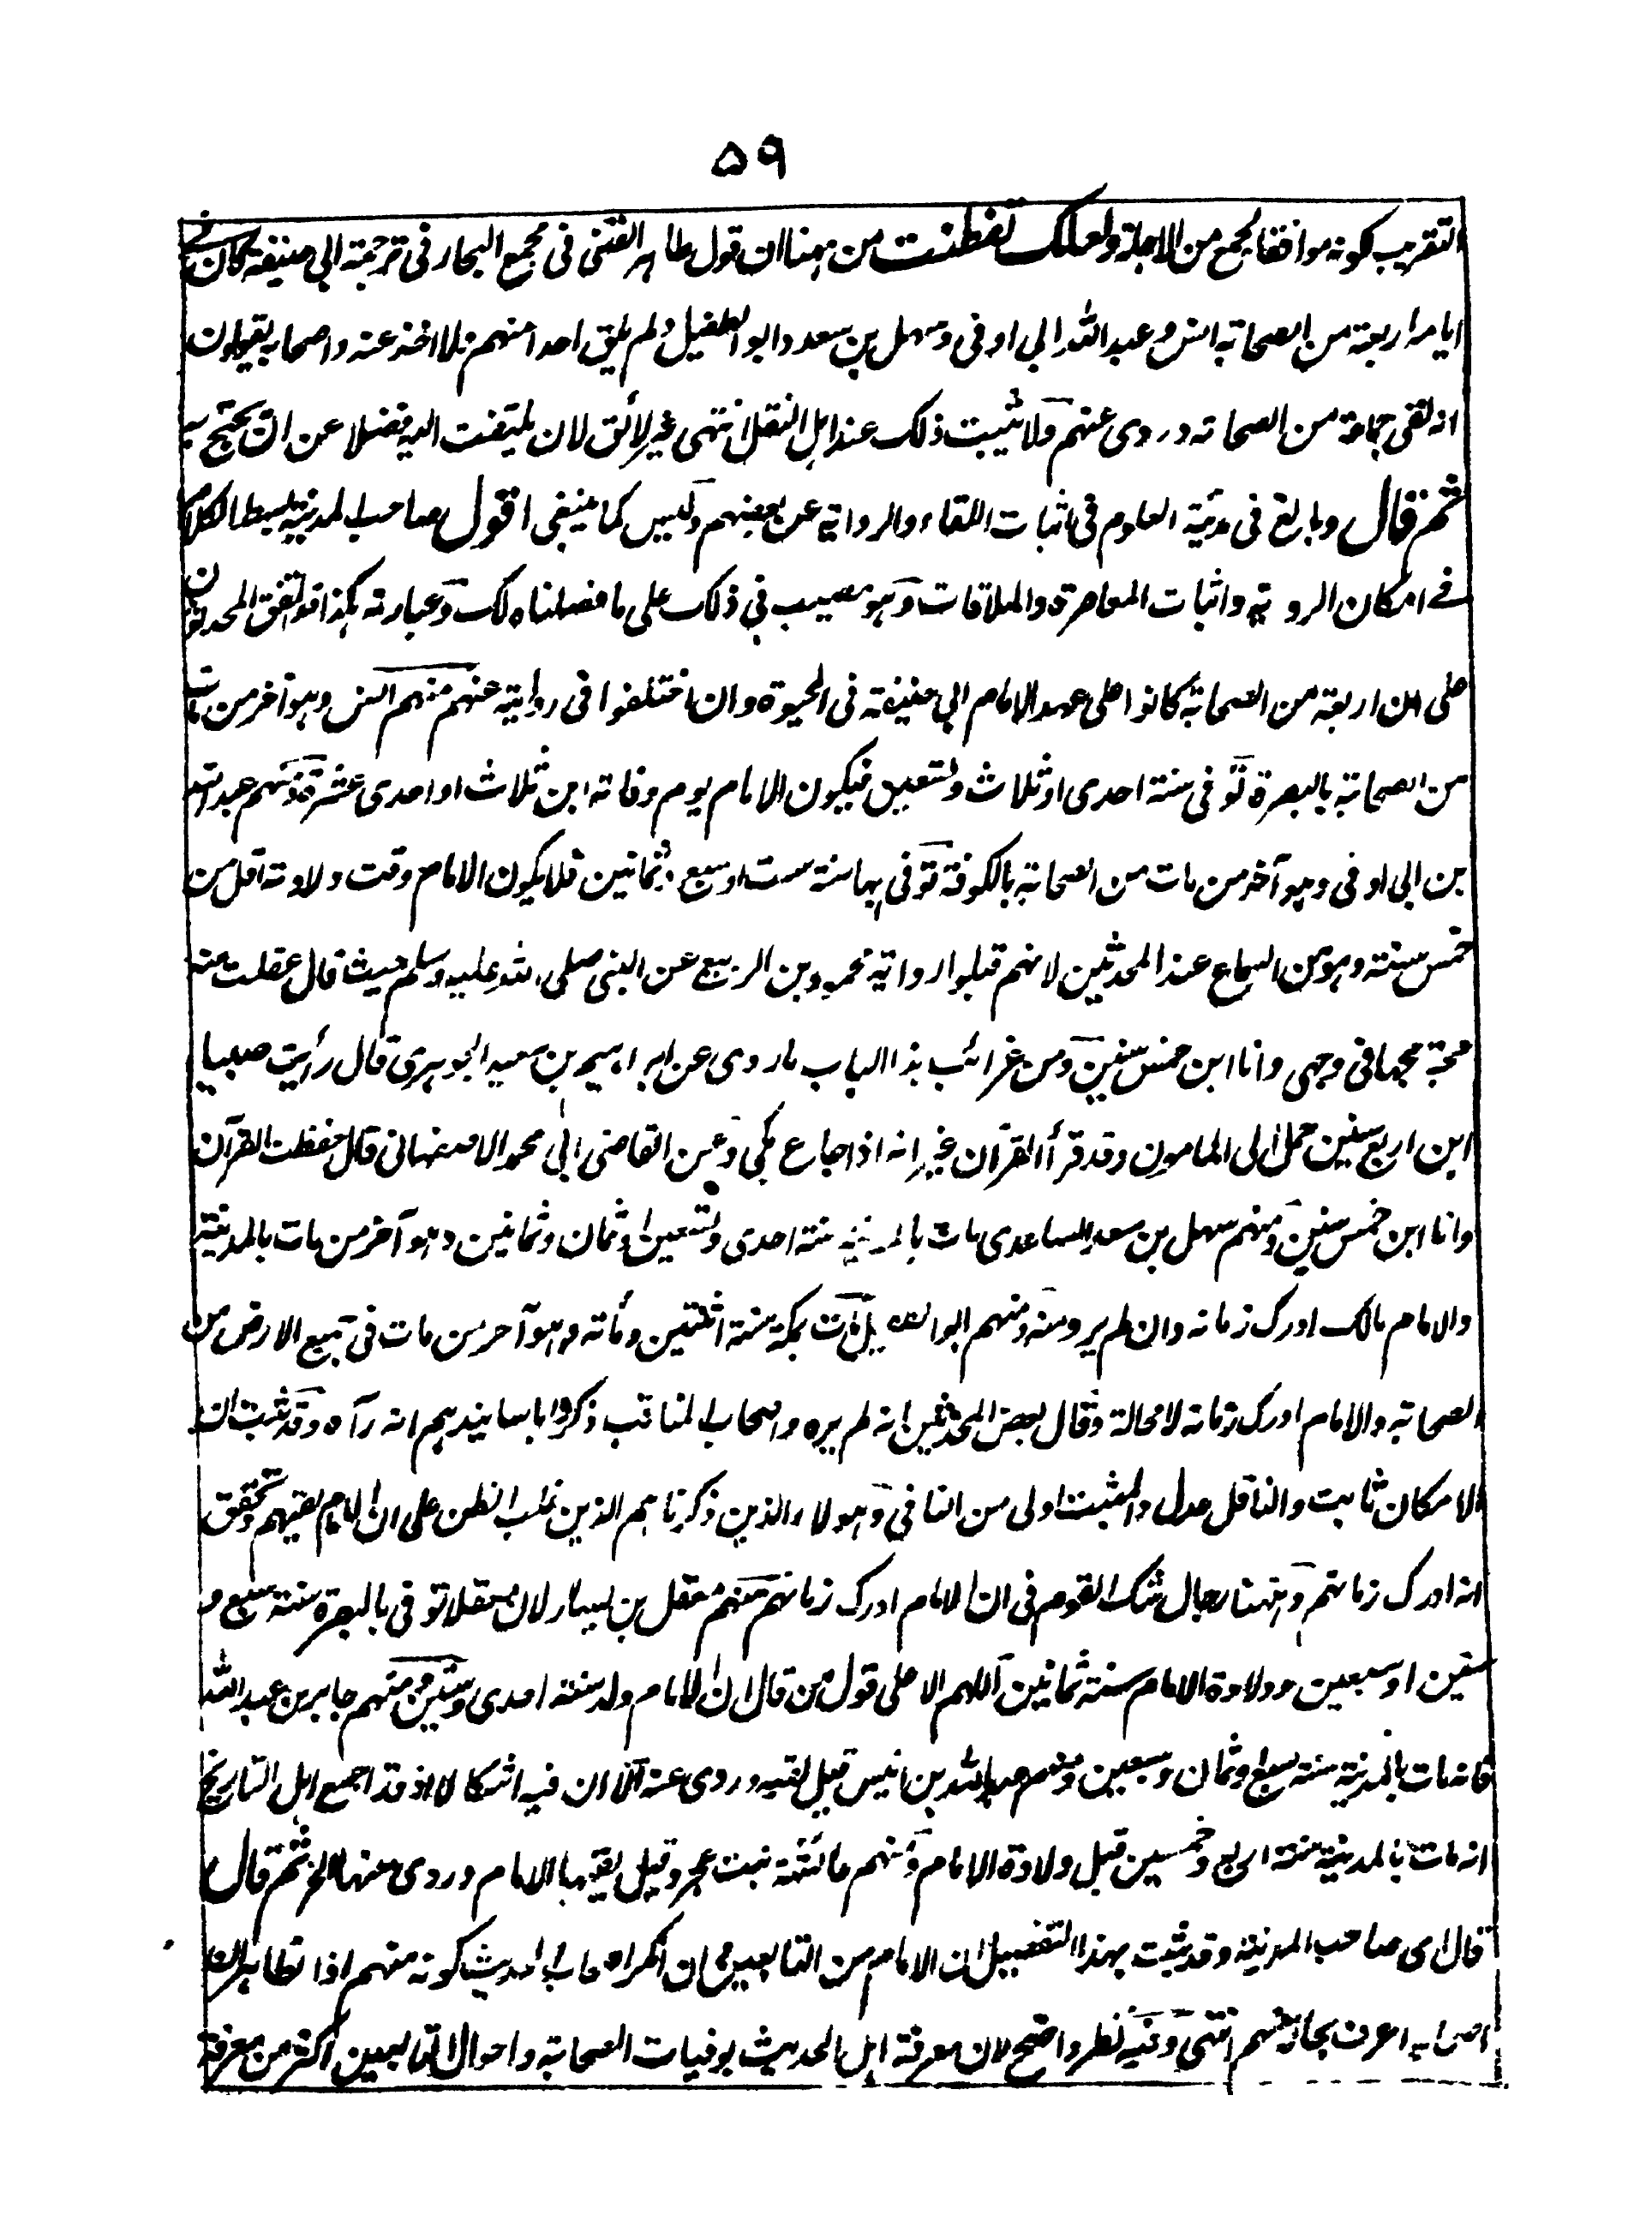 ٥٩
التقريب كونه موافقا لجمع من الاجلة ولعلك تفطنت من ههنا ان قول طاهر الفتنى فى مجمع البحار فى ترجمة ابي حنيفة كان فى
ايامه اربعة من الصحابة انس وعبد الله ابي اوفى وسهل بن سعد وابو الطفيل ولم يلق احدا منهم ولا اخذ عنه واصحابه يقولون
انه لقى جماعة من الصحابة وروى عنهم ولا يثبت ذلك عند اهل النقل انتهى غير لائق لان يلتفت اليه فضلا عن ان يحتج به
ثم قال وبالغ فى مدينة العلوم فى اثبات اللقاء والرواية عن بعضهم وليس كما ينبغى اقول صاحب المدينة بسط الكلام
فے امكان الروية واثبات المعاصرة والملاقات وهو مصيب في ذلك على ما فصلناه لك وعبارته هكذا قد اتفق المحدثون
على ان اربعة من الصحابة كانوا على عهد الامام ابي حنيفة فى الحيوة وان اختلفوا فى روايته عنهم منهم انس وهو آخر من مات
من الصحابة بالبصرة توفى سنة احدى او ثلاث وتسعين فيكون الامام يوم وفاته ابن ثلاث او احدى عشرة ومنهم عبد الله
بن ابي اوفى وهو آخر من مات من الصحابة بالكوفة توفى بها سنة ست او سبع وثمانين فلا يكون الامام وقت ولادته اقل من
خمس سنة وهو من السماع عند المحدثين لانهم قبلوا رواية محمود بن الربيع عن النبى صلى الله عليه وسلم حيث قال عقلت منه
مجة مجها فى وجهى وانا ابن خمس سنين ومن غرائب هذا الباب ما روى عن ابراهيم بن سعيد الجوهرى قال رأيت صبيا
ابن اربع سنين حمل الى المامون وقد قرأ القرآن غير انه اذا جاع بكى وعن القاضى ابى محمد الاصفهانى قال حفظت القرآن
وانا ابن خمس سنين ومنهم سهل بن سعد الساعدى مات بالمدينة سنة احدى وتسعين او ثمان وثمانين وهو آخر من مات بالمدينة
والامام مالك ادرك زمانه وان لم يرو منه ومنهم ابو الطفيل مات بمكة سنة اثنتين ومائة وهو آخر من مات فى جميع الارض من
الصحابة والامام ادرك زمانه لا محالة وقال بعض المحدثين انه لم يره واصحاب المناقب ذكروا باسانيدهم انه رآه وقد ثبت ان
الامكان ثابت والناقل عدل والمثبت اولى من النافى وهولاء الذين ذكرناهم الذين غلب الظن على ان الامام لقيهم وتحقق
انه ادرك زمانهم وههنا رجال شك القوم فى ان الامام ادرك زمانهم منهم معقل بن يسار لان معقلا توفى بالبصرة سنة سبع و
ستين او سبعين وولادة الامام سنة ثمانين اللهم الا على قول من قال ان الامام ولد سنة احدى وستين ومنهم جابر بن عبد الله
فانه مات بالمدينة سنة سبع او ثمان وسبعين ومنهم عبد الله بن انيس قيل لقيه وروى عنه الا ان فيه اشكالا اذ قد اجمع اهل التاريخ
انه مات بالمدينة سنة اربع وخمسين قبل ولادة الامام ومنهم عائشة بنت عجرد قيل لقيها الامام وروى عنها الخ ثم قال
قال اى صاحب المدينة وقد ثبت بهذا التفصيل ان الامام من التابعين وان انكر اصحاب الحديث كونه منهم اذ الظاهر ان
اصحابه اعرف بحاله منهم انتهى وفيه نظر واضح لان معرفة اهل الحديث بوفيات الصحابة واحوال التابعين اكثر من معرفة